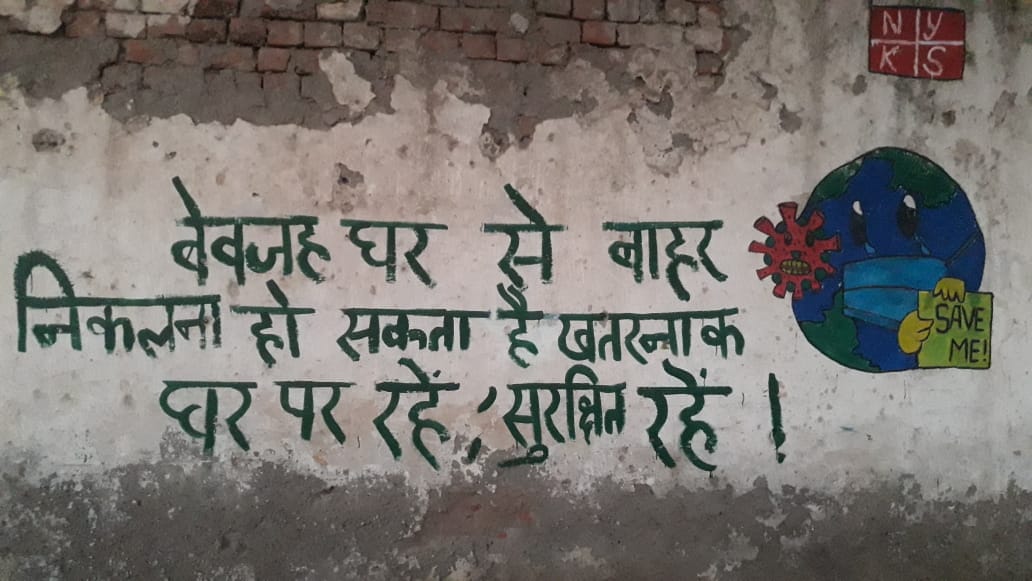 NY
KS
बेवजह घर से बाहर
निकलना हो सकता है खतरनाक
घर पर रहें, सुरक्षित रहें !
SAVE
ME!